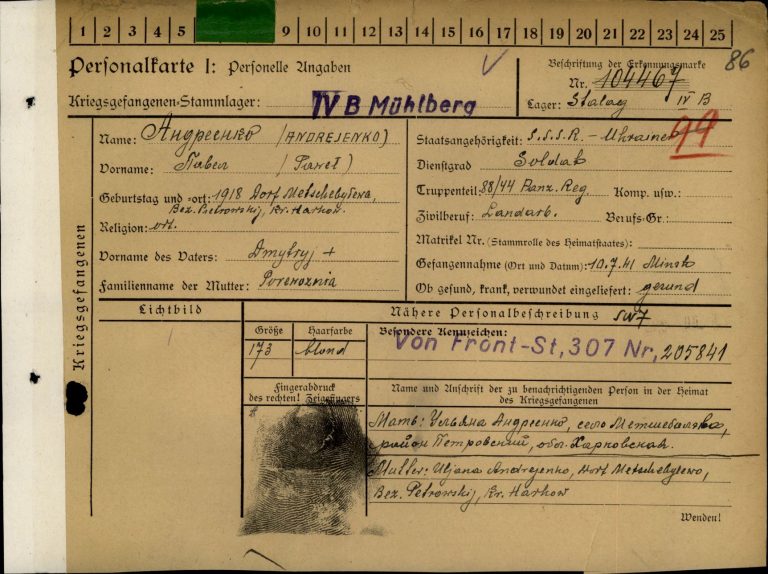 1 2 3 4 5 9 10 11 12 13 14 15 16 17 18 19 20 21 22 23 24 25
86
Personalkarte I: Personelle Angaben
Beschriftung der Erkennungsmarke
Nr. 104467
Kriegsgefangenen-Stammlager: IV B Mühlberg
Lager: Stalag IV B
Kriegsgefangenen
Name: Андреенко (ANDREJENKO)
Vorname: Павел (Paweł)
Geburtstag und -ort: 1918 Dorf Metschebylewa,
Bez. Pietrowskij, Kr. Harkow.
Religion: ort.
Vorname des Vaters: Dmytryj +
Familienname der Mutter: Porewoznia
Staatsangehörigkeit: S.S.S.R. - Ukrainer
Dienstgrad Soldat
Truppenteil: 88/44 Panz. Reg. Komp. usw.:
Zivilberuf: Landarb. Berufs-Gr.:
Matrikel Nr. (Stammrolle des Heimatstaates):
Gefangennahme (Ort und Datum): 10.7.41 Minsk
Ob gesund, krank, verwundet eingeliefert: gesund
Lichtbild
Nähere Personalbeschreibung
Größe Haarfarbe Besondere Kennzeichen:
173 blond
Von Front-St, 307 Nr, 205841
Fingerabdruck
des rechten! Zeigefingers
Name und Anschrift der zu benachrichtigenden Person in der Heimat
des Kriegsgefangenen
Мать: Ульяна Андреенко, село Метшебаловка,
район Петровский, обл. Харковская.
Mutter: Uljana Andrejenko, Dorf Metschebylewo,
Bez. Petrowskij, Kr. Harkow
Wenden!